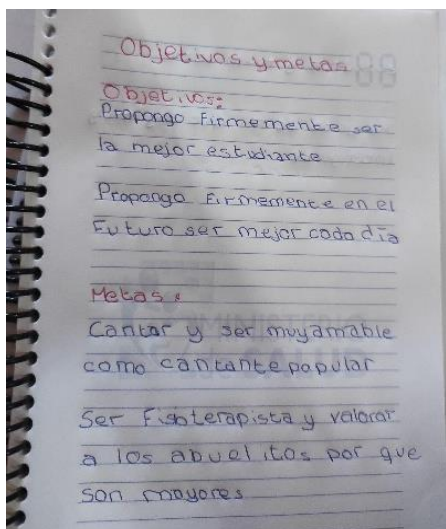 Objetivos y metas
Objetivos:
Propongo Firmemente ser
la mejor estudiante
Propongo Firmemente en el
Futuro ser mejor cada día
Metas:
Cantar y ser muy amable
como cantante popular
Ser Fisoterapista y valorar
a los abuelitos por que
son mayores